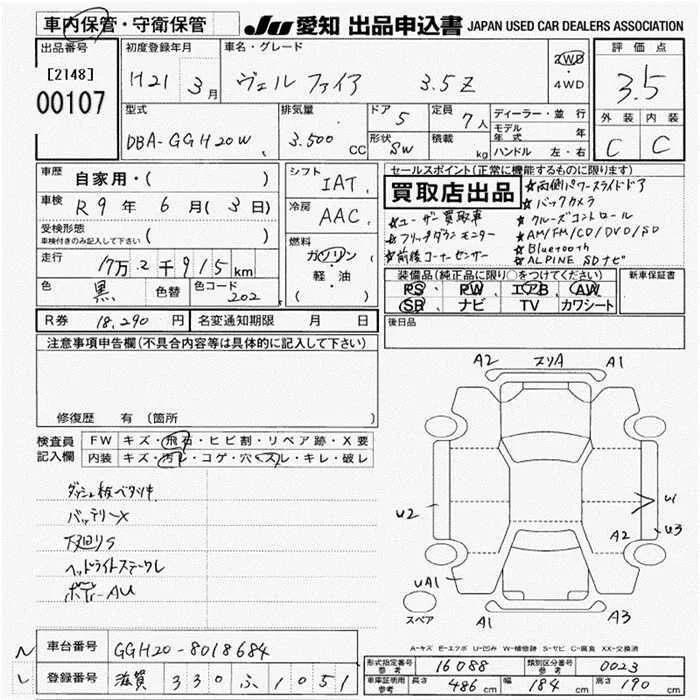 車内保管・守衛保管 JU 愛知 出品申込書 JAPAN USED CAR DEALERS ASSOCIATION
出品番号 初度登録年月 車名・グレード 評価点
[2148] H21 3月 ヴェルファイア 3.5Z 2WD・4WD 3.5
00107 外装 内装
型式 排気量 ドア 5 定員 7人 ディーラー・並行
DBA-GGH20W 3.500 CC 形状 8W 積載 kg モデル年式 年 C C
ハンドル 左・右
車歴 自家用・( ) シフト IAT セールスポイント(正常に機能するものに限ります)
車検 R9年 6月(3日) 冷房 AAC 買取店出品 ☆両側パワースライドドア
☆バックカメラ
☆ユーザー買取車 ☆クルーズコントロール
受検形態 ☆フリップダウンモニター ☆AM/FM/CD/DVD/SD
車検付きのみ記入して下さい ( ) 燃料 ☆前後コーナーセンサー ☆Bluetooth
☆ALPINE SDナビ
走行 17万.2千915km ガソリン 装備品(純正品に限り○をつけてください) 新車保証書
色 黒 色替 色コード 202 軽・油 ( ) PS PW エアB AW
SB ナビ TV カワシート
R券 18,290円 名変通知期限 月 日 後日品
注意事項申告欄(不具合内容等は具体的に記入して下さい)
修復歴 有 (箇所 )
検査員記入欄 FW キズ・飛石・ヒビ割・リペア跡・X要
内装 キズ・汚レ・コゲ・穴・スレ・キレ・破レ
ダッシュ板ベタツキ
バッテリーX
下廻りS
ヘッドライトステークレ
ボディーAU
A2 スリA A1
U2 U1
A2 U3
UA1
スペア A1 A3
A-キズ E-エクボ U-凹み W-補修跡 S-サビ C-腐食 XX-交換済
車台番号 GGH20-8018684
登録番号 滋賀 330 ふ 1051
形式指定番号 参考 16088 類別区分番号 参考 0023
車庫証明用 参考 長さ 486 cm 幅 184 cm 高さ 190 cm